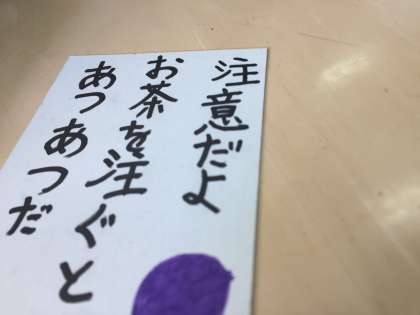 注意だよ
お茶を注ぐと
あつあつだ